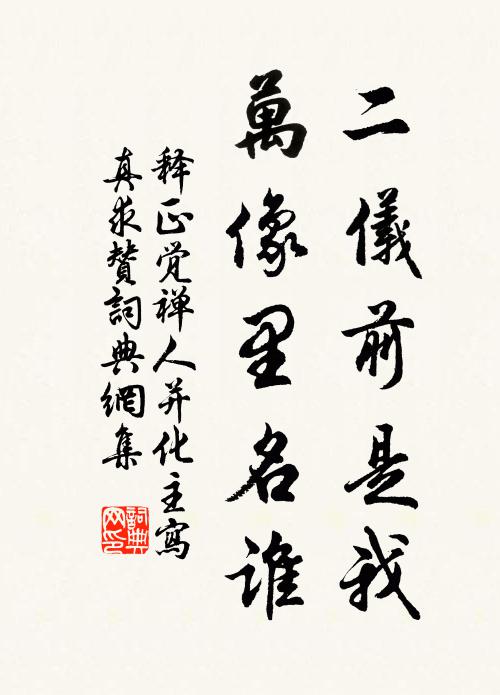 二儀前是我
萬像里名誰
释正觉禅人并化主寫
真求赞詞典網集
詞典网印